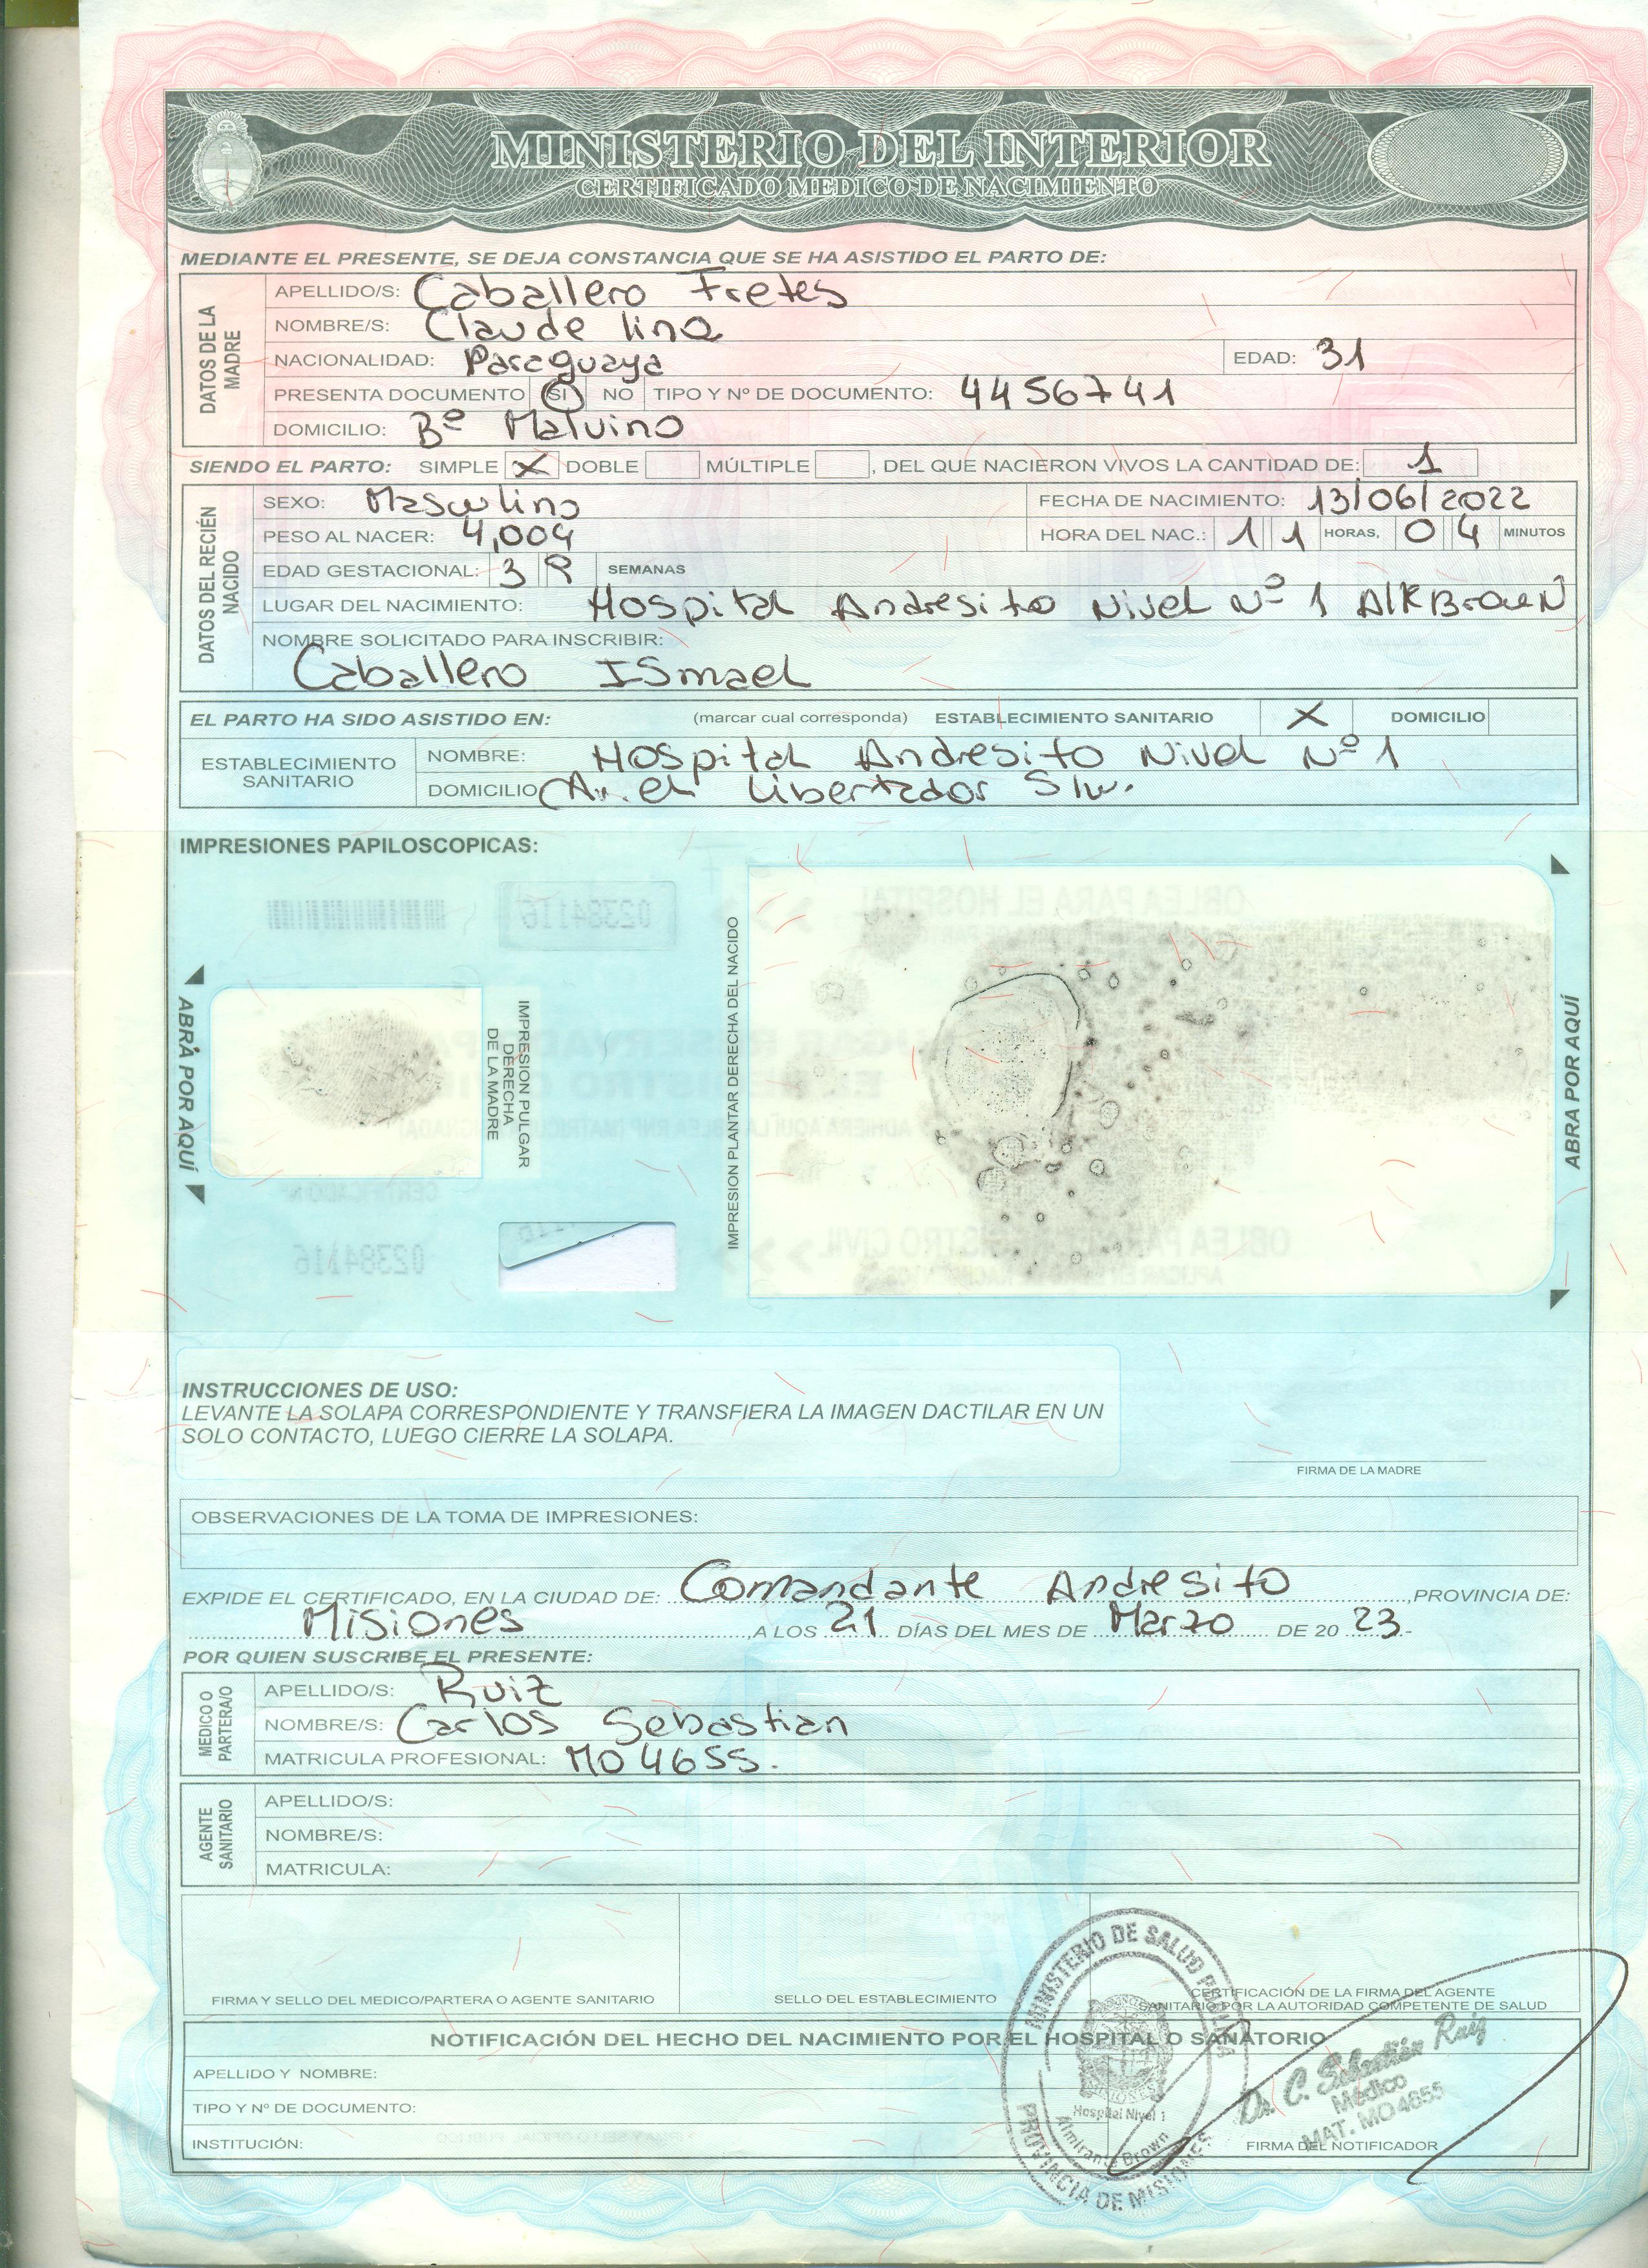 MINISTERIO DEL INTERIOR
CERTIFICADO MEDICO DE NACIMIENTO
MEDIANTE EL PRESENTE, SE DEJA CONSTANCIA QUE SE HA ASISTIDO EL PARTO DE:
DATOS DE LA MADRE
APELLIDO/S: Caballero Fretes
NOMBRE/S: Claude lina
NACIONALIDAD: Paraguaya EDAD: 31
PRESENTA DOCUMENTO SI NO TIPO Y Nº DE DOCUMENTO: 4456741
DOMICILIO: Bº Malvina
SIENDO EL PARTO: SIMPLE X DOBLE MÚLTIPLE , DEL QUE NACIERON VIVOS LA CANTIDAD DE: 1
DATOS DEL RECIÉN NACIDO
SEXO: Masculino FECHA DE NACIMIENTO: 13/06/2022
PESO AL NACER: 4,004 HORA DEL NAC.: 11 HORAS, 04 MINUTOS
EDAD GESTACIONAL: 39 SEMANAS
LUGAR DEL NACIMIENTO: Hospital Andresito Nivel Nº 1 Alt Brown
NOMBRE SOLICITADO PARA INSCRIBIR:
Caballero Ismael
EL PARTO HA SIDO ASISTIDO EN: (marcar cual corresponda) ESTABLECIMIENTO SANITARIO X DOMICILIO
ESTABLECIMIENTO SANITARIO
NOMBRE: Hospital Andresito Nivel Nº 1
DOMICILIO Av. el Libertador S/n.
IMPRESIONES PAPILOSCOPICAS:
ABRA POR AQUÍ
IMPRESION PULGAR DERECHA DE LA MADRE
IMPRESION PLANTAR DERECHA DEL NACIDO
ABRA POR AQUÍ
INSTRUCCIONES DE USO:
LEVANTE LA SOLAPA CORRESPONDIENTE Y TRANSFIERA LA IMAGEN DACTILAR EN UN
SOLO CONTACTO, LUEGO CIERRE LA SOLAPA.
FIRMA DE LA MADRE
OBSERVACIONES DE LA TOMA DE IMPRESIONES:
EXPIDE EL CERTIFICADO, EN LA CIUDAD DE: Comandante Andresito, PROVINCIA DE:
Misiones, A LOS 21 DÍAS DEL MES DE Marzo DE 20 23.-
POR QUIEN SUSCRIBE EL PRESENTE:
MEDICO O PARTERA/O
APELLIDO/S: Ruiz
NOMBRE/S: Carlos Sebastian
MATRICULA PROFESIONAL: MO 4655.
AGENTE SANITARIO
APELLIDO/S:
NOMBRE/S:
MATRICULA:
FIRMA Y SELLO DEL MEDICO/PARTERA O AGENTE SANITARIO
SELLO DEL ESTABLECIMIENTO
CERTIFICACIÓN DE LA FIRMA DEL AGENTE
SANITARIO POR LA AUTORIDAD COMPETENTE DE SALUD
NOTIFICACIÓN DEL HECHO DEL NACIMIENTO POR EL HOSPITAL O SANATORIO
APELLIDO Y NOMBRE:
TIPO Y Nº DE DOCUMENTO:
INSTITUCIÓN:
MINISTERIO DE SALUD PUBLICA
Hospital Nivel 1
Almirante Brown
PROVINCIA DE MISIONES
Dr. C. Sebastián Ruiz
Médico
MAT. MO 4655
FIRMA DEL NOTIFICADOR